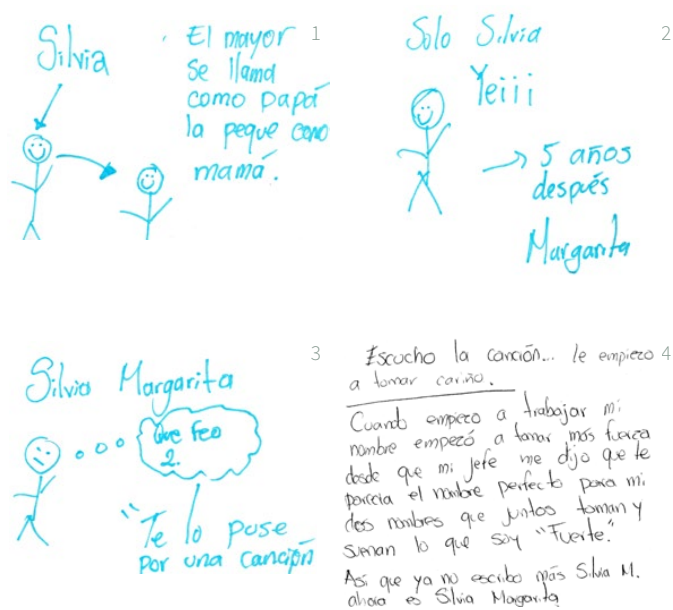 Silvia
El mayor
se llama
como papá
la peque como
mamá.
1
Solo Silvia
Yeiii
5 años
después
Margarita
2
Silvia Margarita
Que feo
2.
"Te lo puse
por una canción
3
Escucho la canción... le empiezo
a tomar cariño.
Cuando empiezo a trabajar mi
nombre empezó a tomar más fuerza
desde que mi jefe me dijo que le
parecía el nombre perfecto para mi
dos nombres que juntos toman y
suenan lo que soy "Fuerte."
Así que ya no escribo más Silvia M.
ahora es Silvia Margarita
4